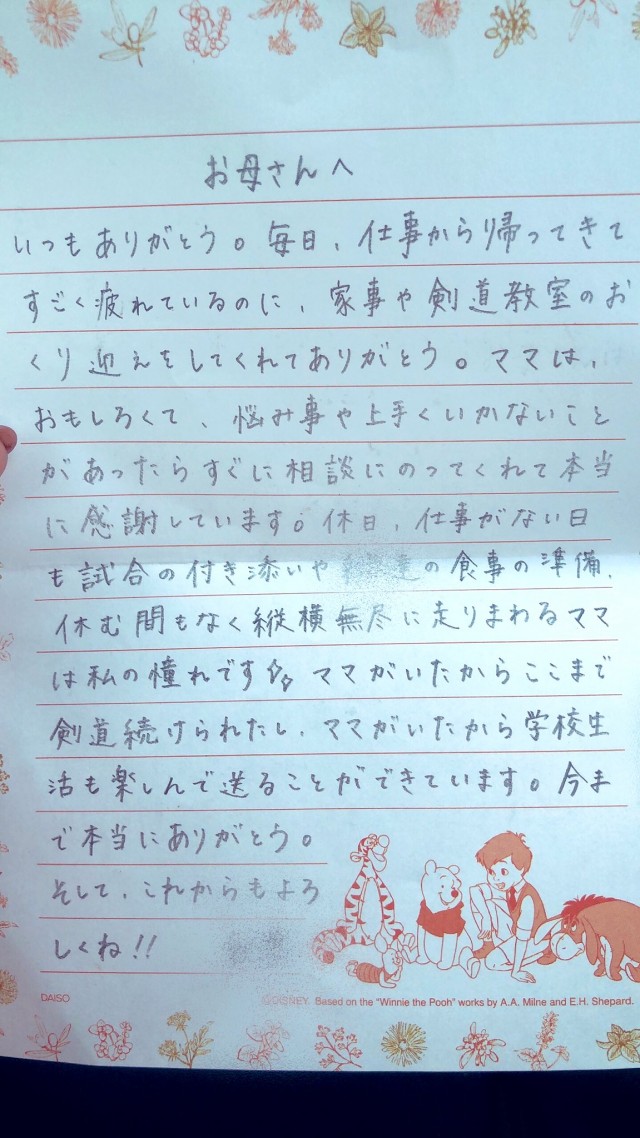 お母さんへ
いつもありがとう。毎日、仕事から帰ってきて
すごく疲れているのに、家事や剣道教室のお
くり迎えをしてくれてありがとう。ママは、
おもしろくて、悩み事や上手くいかないこと
があったらすぐに相談にのってくれて本当
に感謝しています。休日、仕事がない日
も試合の付き添いや達の食事の準備、
休む間もなく縦横無尽に走りまわるママ
は私の憧れです☆☆ ママがいたからここまで
剣道続けられたし、ママがいたから学校生
活も楽しんで送ることができています。今ま
で本当にありがとう。
そして、これからもよろ
しくね!!
DAISO
©DISNEY Based on the "Winnie the Pooh" works by A.A. Milne and E.H. Shepard.